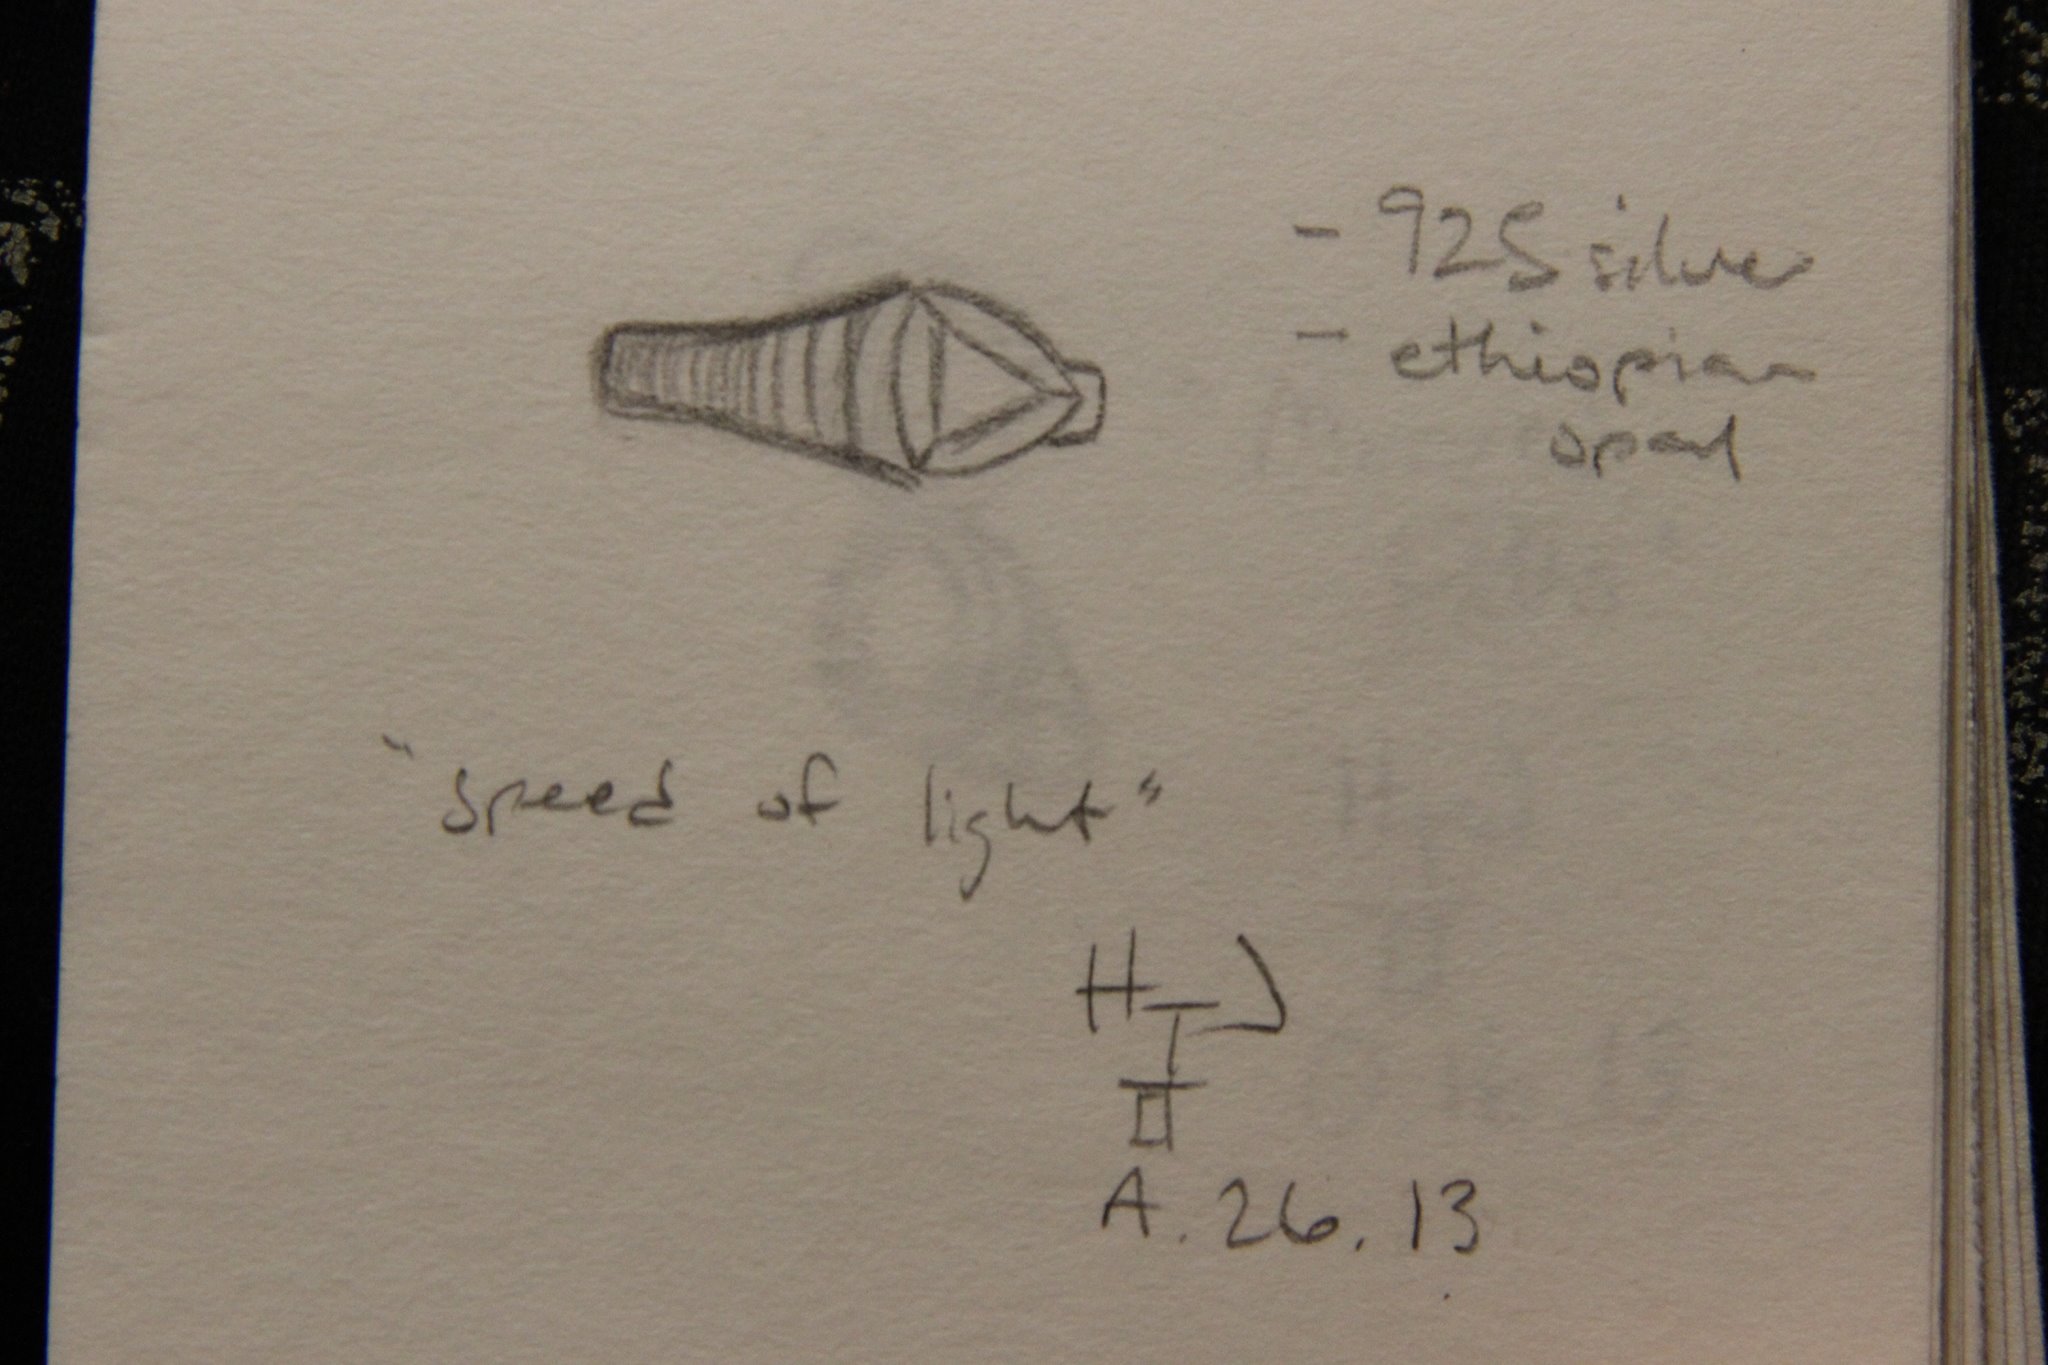 - 925 silver
- ethiopian
opal
"speed of light"
HTJ
A.26.13